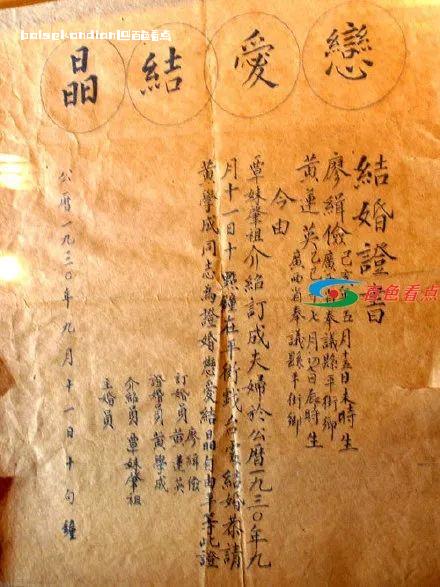 baisekandian@百色看点
戀愛結晶
結婚證書
廖緝儉 己亥年五月十五日未時生
廣西省奉議縣平街鄉
黃蓮英 己巳年七月初四日辰時生
廣西省奉議縣平街鄉
今由
覃妹肇祖介紹訂成夫婦於公曆一九三〇年九
月十一日十點鐘在平街戲台宣結婚恭請
黃學成同志為證婚戀愛結晶自由平等此證
訂婚員 廖緝儉
黃蓮英
證婚員 黃學成
介紹員 覃妹肇祖
主婚員
公曆一九三〇年九月十一日十句鐘
百色看点